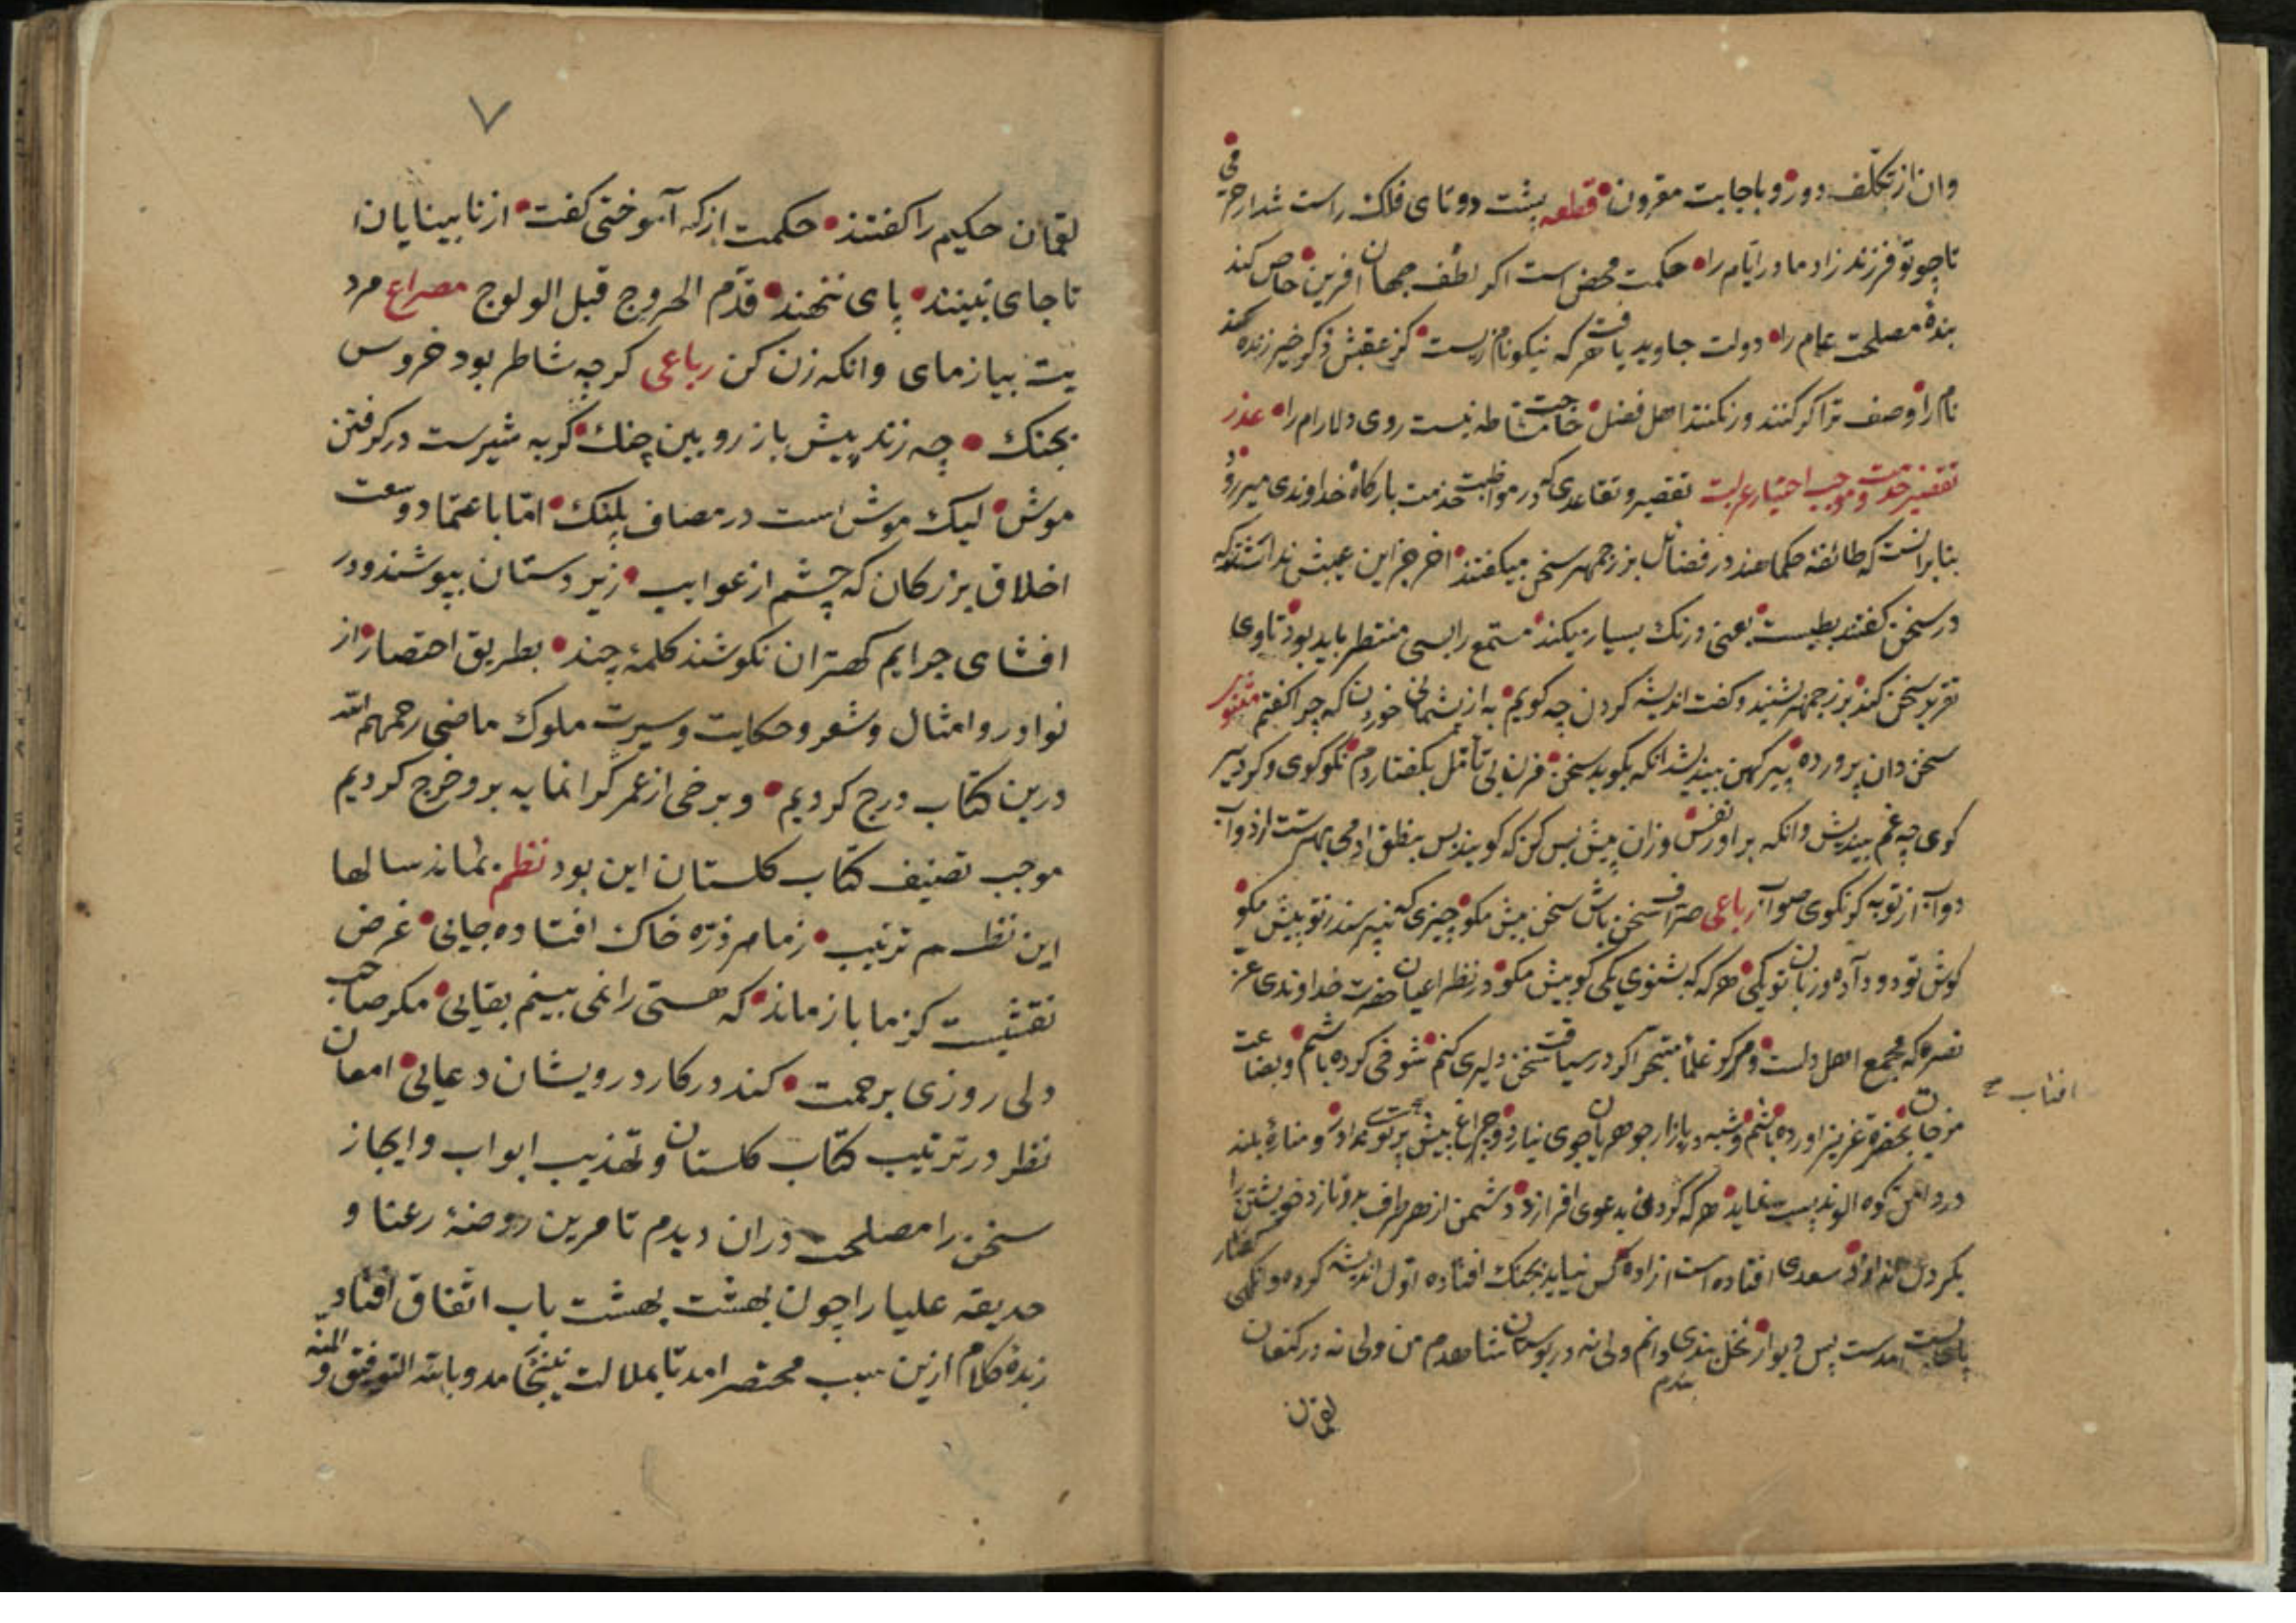 وان از تکلّف دور و باجابت مقرون قطعه پشت دوتای فلک راست شد از خرّمی
تا چو تو فرزند زاد مادر ایّام را حکمت محض است اکر لطف جهان افرین خاص کند
بندهٔ مصلحت عام را دولت جاوید یافت هر که نیکونام زیست کز عقبش ذکر خیر زنده کند
نام را وصف ترا کر کنند ور نکنند اهل فضل حاجت مشّاطه نیست روی دلارام را عذر
تقصیر خدمت و موجب اختیار عزلت تقصیر و تقاعدی که در مواظبت خدمت بارکاه خداوندی میرود
بنابر انست که طائفهٔ حکما هند در فضائل بزرجمهر سخن میکفتند اخر جز این عیبش ندانستند که
در سخن کفتن بطیست یعنی درنک بسیار میکند مستمع را بسی منتظر باید بود تا وی
تقریر سخن کند بزرجمهر بشنید و کفت اندیشه کردن چه کویم به از پشیمانی خوردن که چرا کفتم مثنوی
سخن دان پرورده پیر کهن بیندیشد انکه بکوید سخن مزن بی تأمّل بکفتار دم نکو کوی و کر دیر
کوی چه غم بیندیش وانکه براور نفس وزان پیش بس کن که کویند بس بنطق ادمی بهترست از دواب
دواب از تو به کر نکوی صواب رباعی صرّاف سخن باش سخن بیش مکو چیزی که نپرسند تو پیش مکو
کوش تو دو دادند و زبان تو یکی هر که که بشنوی یکی کو بیش مکو در نظر اعیان حضرت خداوندی عزّ
نصره که مجمع اهل دلست و مرکز علماء متبحّر اکر در سیاقت سخن دلیری کنم شوخی کرده باشم و بضاعت
مزجات بحضرة عزیز اورده باشم و شبه در بازار جوهریان جوی نیارد و چراغ پیش آفتاب پرتوی ندارد و منارهٔ بلند
در دامن کوه الوند پست نماید هر که کردن بدعوی افرازد دشمن از هر طرف برو تازد خویشتن را
بکردن اندازد سعدی افتاده است ازاده کس نیاید بجنک افتاده اوّل اندیشه کرده وانکهی کفتار
پای بست امدست پس دیوار نخل بندی دانم ولی نه در بوستان شاهدم من ولی نه در کنعان
لقمان
افتاب صح
۷
لقمان حکیم را کفتند حکمت از که آموختی کفت از نابینایان
تا جای نبینند پای ننهند قدّم الخروج قبل الولوج مصراع مرد
یت بیازمای وانکه زن کن رباعی کرچه شاطر بود خروس
بجنک چه زند پیش باز رویین چنک کربه شیرست در کرفتن
موش لیک موش است در مصاف پلنک امّا باعتماد وسعت
اخلاق بزرکان که چشم از عوایب زیر دستان بپوشند و در
افشای جرایم کهتران نکوشند کلمهٔ چند بطریق اختصار از
نوادر و امثال و شعر و حکایت و سیرت ملوک ماضی رحمهم الله
درین کتاب درج کردیم و برخی از عمر کرانمایه برو خرج کردیم
موجب تصنیف کتاب کلستان این بود نظم بماند سالها
این نظم ترتیب زما هر ذرّه خاک افتاده جایی غرض
نقشیست کز ما باز ماند که هستی را نمی بینم بقایی مکر صاحب
دلی روزی برحمت کند در کار درویشان دعایی امعان
نظر در ترتیب کتاب کلستان و تهذیب ابواب و ایجاز
سخن را مصلحت دران دیدم تا مرین روضهٔ رعنا و
حدیقه علیا را چون بهشت بهشت باب اتّفاق افتاد
زبدهٔ کلام ازین سبب مختصر امد تا بملالت نینجامد و بالله التوفیق و المنه